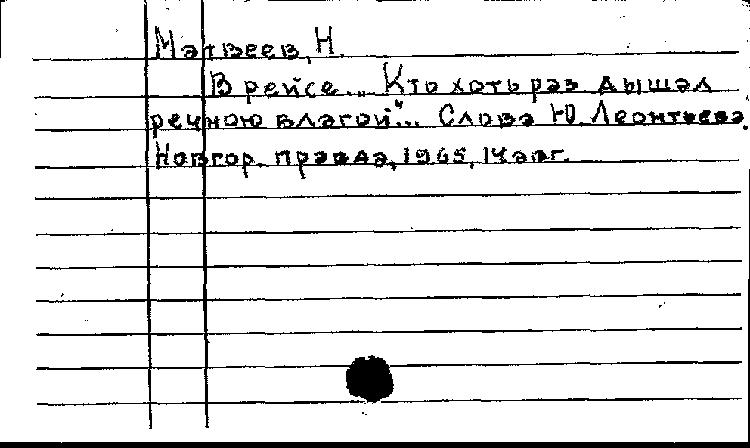 Матвеев, Н.
В рейсе... „Кто хоть раз дышал
речною влагой"... Слова Ю. Леонтьева.
Новгор. правда, 1965, 14 авг.